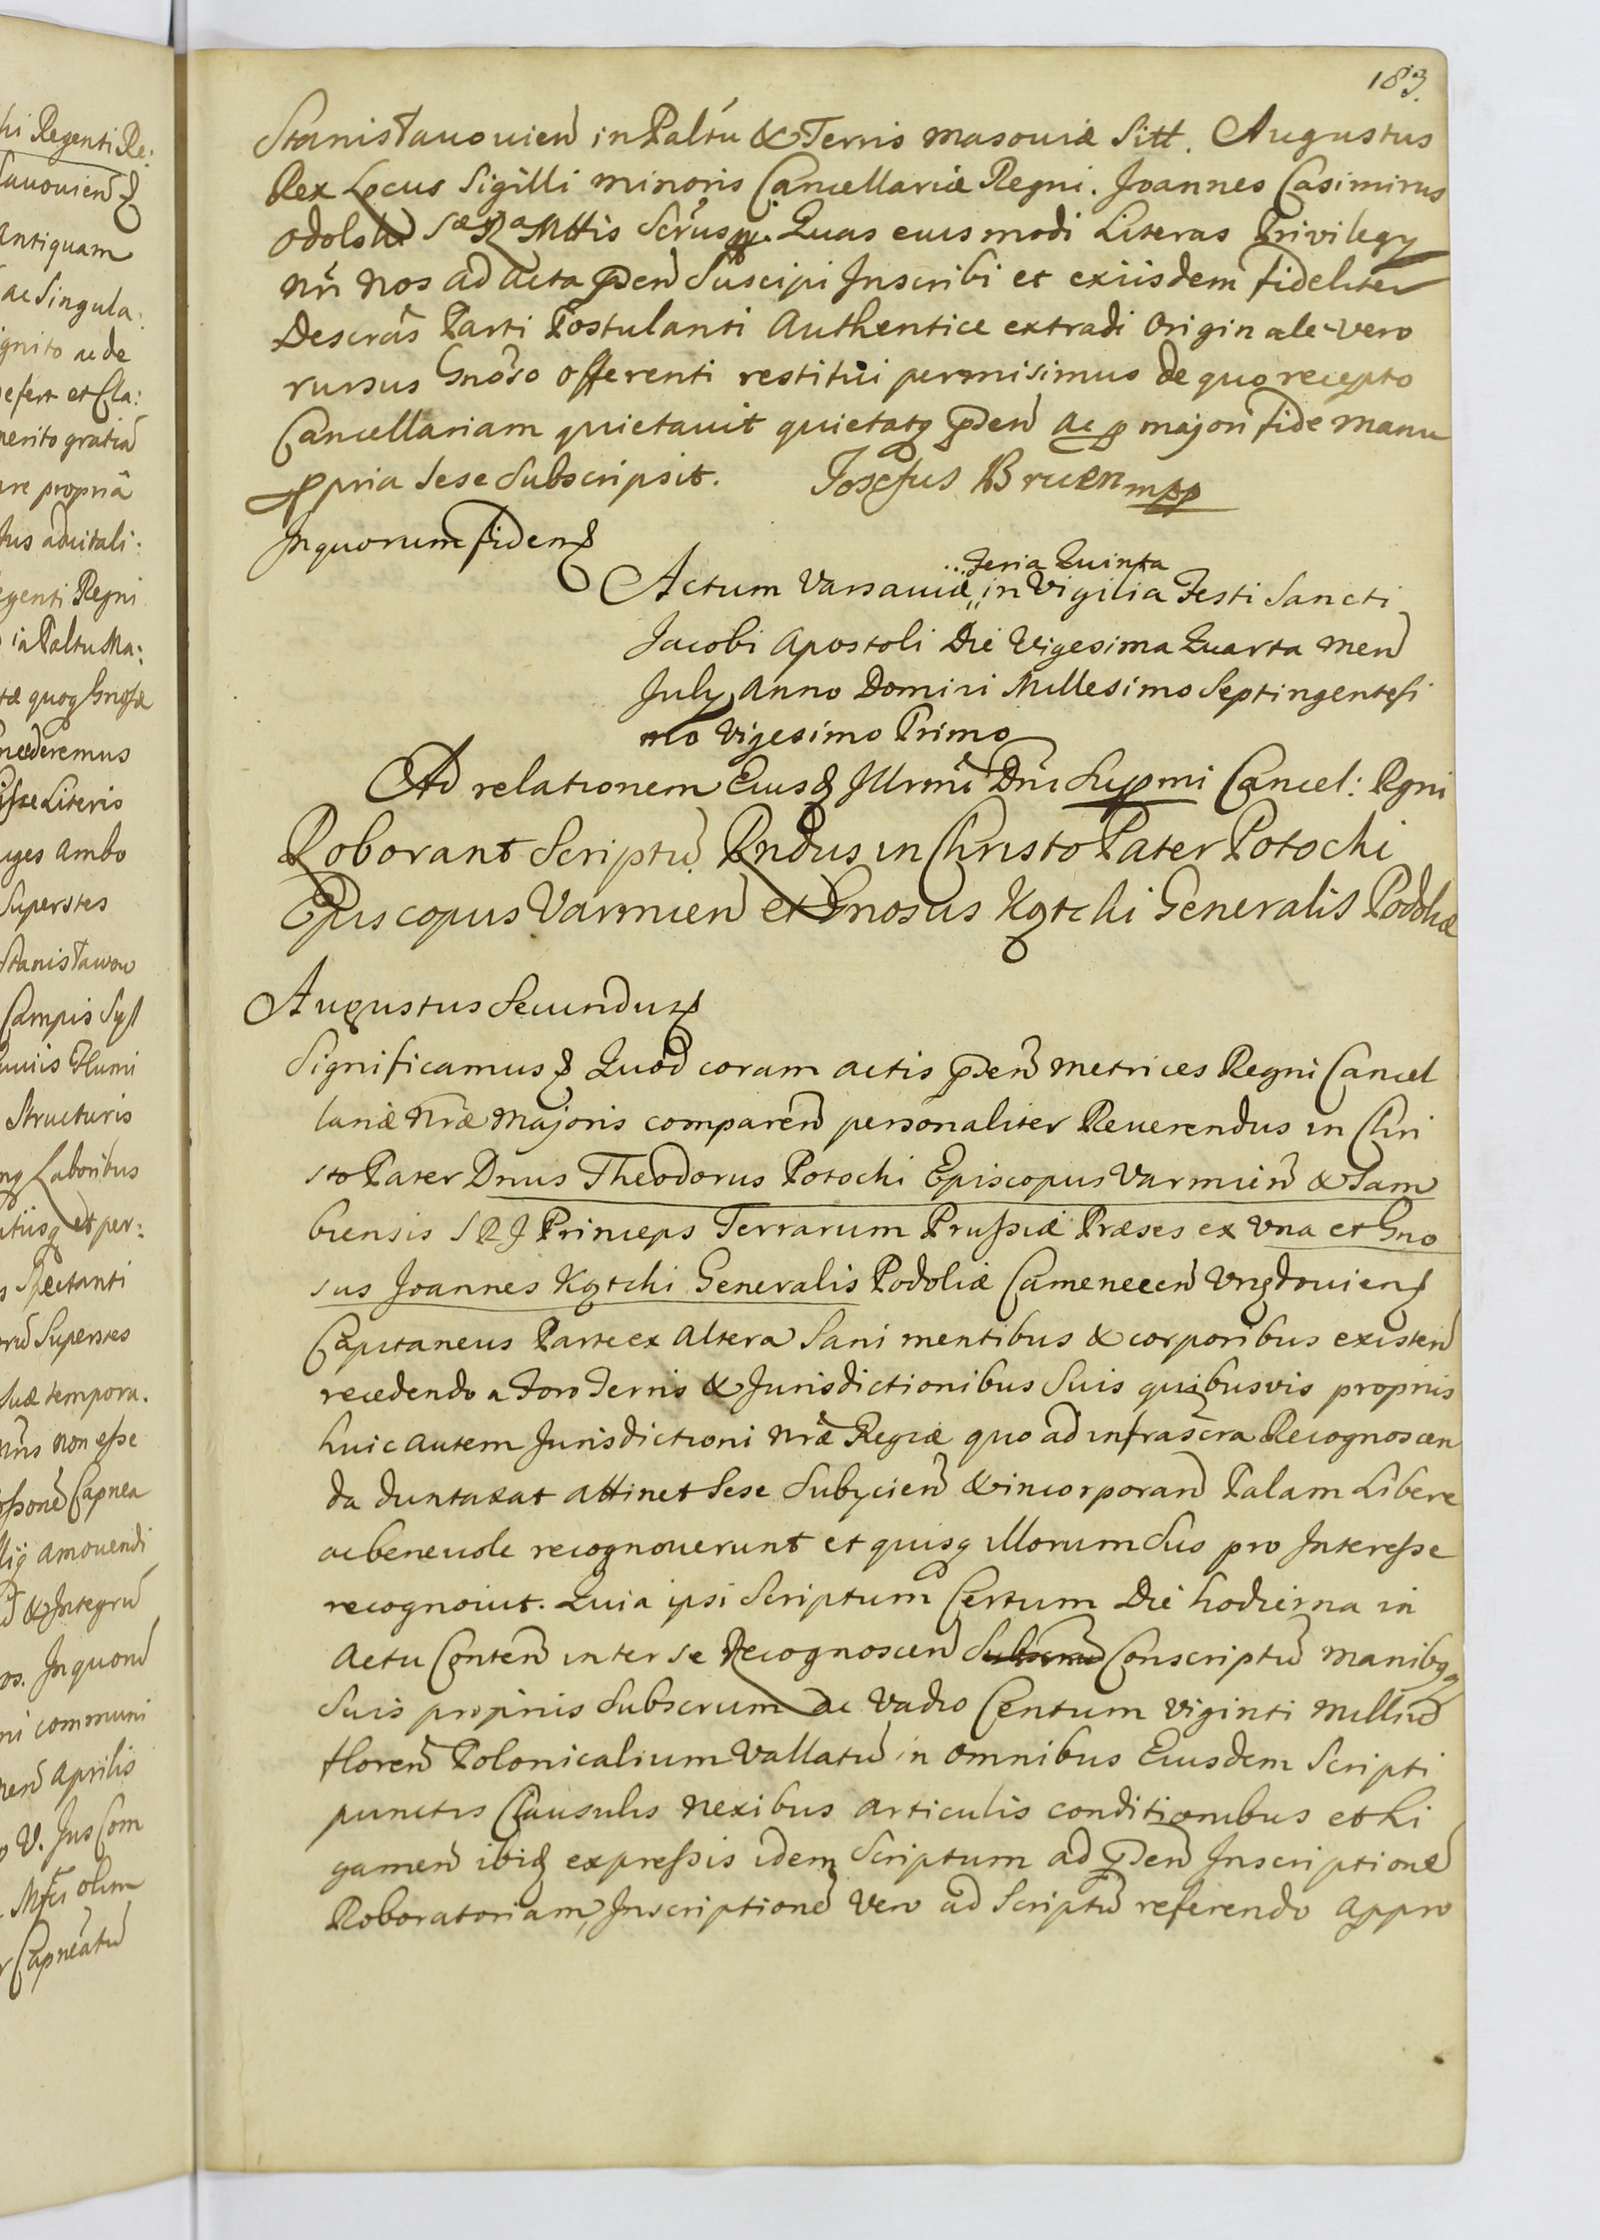 hi Regenti Re:
auouien
antiquam
ac Singula:
gnito ac de
efert et Cla:
merito gratia
re propriâ
tus aduitali:
egenti Regni
in Paltu Ma:
quoq Gnosæ
ncederemus
Literis
uges ambo
Superstes
Stanisławow
Campis Syl
Structuris
Laboribus
et per:
Spectanti
Superstes
suæ tempora.
non esse
Capnea
amouendi
& Integru
os. In quoru
ni communi
Aprilis
V. Jus Com
olim
Capneatu
183.
Stanisłauouien in Paltu & Terris Masouiæ Sitt. Augustus
Rex Locus Sigilli minoris Cancellariæ Regni. Joannes Casimirus
Odolski Sæ Ræ Mttis Scrus mp. Quas eius modi Literas Privilegy
Nri Nos ad acta pden Suscipi Inscribi et exiisdem fideliter
Descras Parti Postulanti Authentice extradi Originale vero
rursus Gnoso offerenti restitui permisimus de quo recepto
Cancellariam quietauit quietatq pden ac p majori fide manu
ppria sese Subscripsit. Josefus Bruen mpp
In quorum fidem
... Feria Quinta
Actum Varsauiæ in Vigilia Festi Sancti
Jacobi Apostoli Die Vigesima Quarta Men
July Anno Domini Millesimo Septingentesi
mo Vigesimo Primo
Ad relationem Eiusd Illrmi Dni Supmi Cancel: Rgni
Roborant Scriptu Rndus in Christo Pater Potocki
Episcopus Varmien et Gnosus Kątcki Generalis Podoliæ
Augustus Secundus
Significamus Quod coram actis pden Metrices Regni Cancel
lariæ Nræ Majoris comparen personaliter Reuerendus in Chri
sto Pater Dnus Theodorus Potocki Episcopus Varmien & Sam
biensis S R J Princeps Terrarum Prussiæ Præses ex Vna et Gno
sus Joannes Kątcki Generalis Podoliæ Camenecen Vnędouien
Capitaneus Parte ex Altera Sani mentibus & corporibus existen
recedendo a Foro Terris & Jurisdictionibus Suis quibusvis propriis
huic autem Jurisdictioni Nræ Regiæ quo ad infrascra Recognoscen
da duntaxat attinet Sese Subycien & incorporan Palam Libere
ac beneuole recognouerunt et quisq illorum Suo pro Interesse
recognouit. Quia ipsi Scriptum Certum Die hodierna in
Actu Conten inter se Recognoscen Conscriptu Manibq
Suis propriis Subscrum ac Vadio Centum Viginti Milliu
floren Polonicalium Vallatu in Omnibus Eiusdem Scripti
punctis Clausulis Nexibus Articulis conditionibus et Li
gamen ibid expressis idem Scriptum ad pden Inscriptione
Roboratoriam, Inscriptione Vero ad Scriptu referendo appro